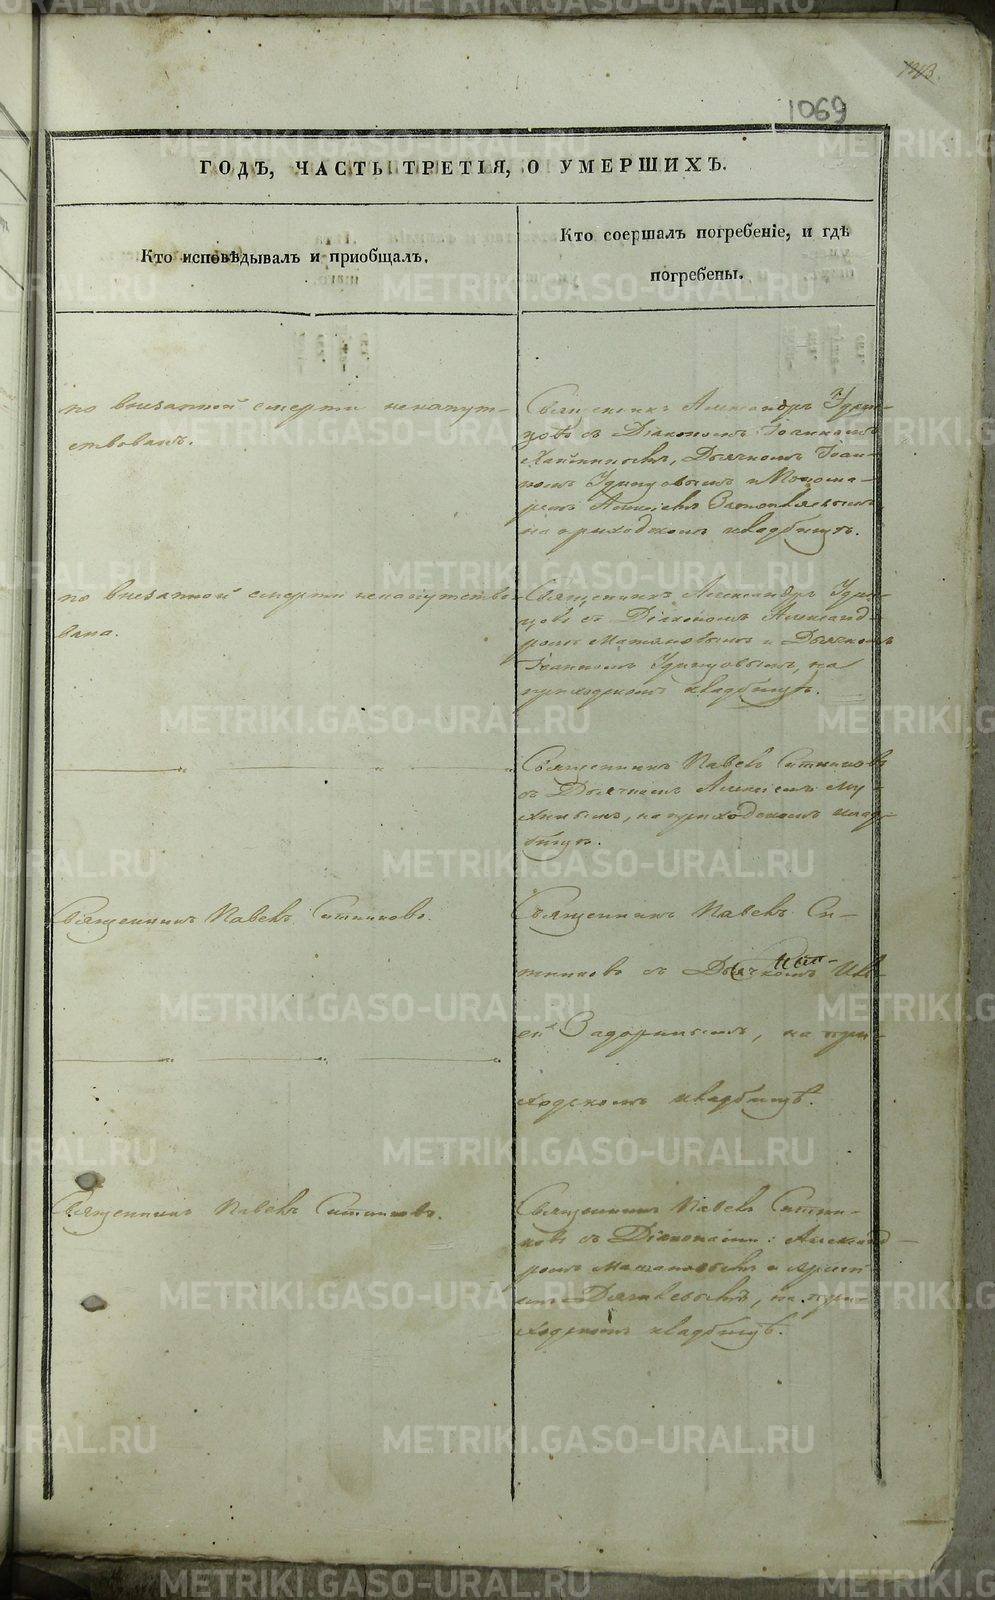 1069
ГОДЪ, ЧАСТЬ ТРЕТІЯ, О УМЕРШИХЪ.
Кто исповѣдывалъ и пріобщалъ.
Кто соершалъ погребеніе, и гдѣ
погребены.
по внезапной смерти ненапут-
ствованъ.
Священникъ Александръ Удин-
цовъ съ Діакономъ
Дьячкомъ Іоан-
номъ Удинцовымъ и Понома-
ремъ Алексіемъ
на приходскомъ кладбищѣ.
по внезапной смерти ненапутство-
вана.
Священникъ Александръ Удин-
цовъ съ Діакономъ Александ-
ромъ и Дьячкомъ
Іоанномъ Удинцовымъ, на
приходскомъ кладбищѣ.
Священникъ Павелъ Ситниковъ
съ Дьячкомъ Алексіемъ Му-
хинымъ, на приходскомъ клад-
бищѣ.
Священникъ Павелъ Ситниковъ.
Священникъ Павелъ Си-
тниковъ съ Дьячкомъ
Задоринымъ, на при-
ходскомъ кладбищѣ.
Священникъ Павелъ Ситниковъ.
Священникъ Павелъ Ситни-
ковъ съ Діаконами: Александ-
ромъ и
на при-
ходскомъ кладбищѣ.
METRIKI.GASO-URAL.RU